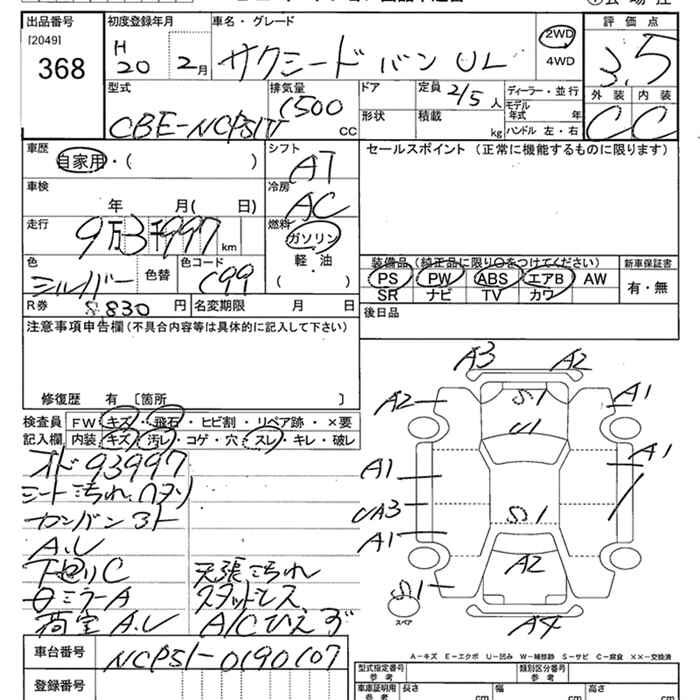 出品番号
[2049]
368
初度登録年月
H
20 2月
車名・グレード
サクシード バン UL
2WD
4WD
評価点
3.5
外装 内装
C C
型式
CBE-NCP51V
排気量
1500
CC
ドア
形状
定員 2/5人
積載
kg
ディーラー・並行
モデル
年式 年
ハンドル 左・右
車歴
自家用・( )
シフト
AT
セールスポイント (正常に機能するものに限ります)
車検
年 月( 日)
冷房
AC
走行
9万3千997
km
燃料
ガソリン
軽・油
( )
色
シルバー
色替
色コード
C99
装備品 (純正品に限り○をつけてください)
PS PW ABS エアB AW
SR ナビ TV カワ
新車保証書
有・無
R券
8830 円
名変期限 月 日
後日品
注意事項申告欄 (不具合内容等は具体的に記入して下さい)
修復歴 有 〔箇所 〕
検査員
記入欄
FW キズ・飛石・ヒビ割・リペア跡・×要
内装 キズ・汚レ・コゲ・穴・スレ・キレ・破レ
オド93997
シート汚れ、ヘタリ
カンバン3ト
A.U
下回りC
天張こ汚れ
ロミラーA
スタットレス
荷室A.U
A/Cひえず
A3 A2
A2 S1 A1
U1
A1 A1
UA3
A1 S1
A2
S1
スペア
A4
A-キズ E-エクボ U-凹み W-補修跡 S-サビ C-腐食 XX-交換済
車台番号
NCP51-0190107
登録番号
型式指定番号
参考
類別区分番号
参考
車庫証明用
参考
長さ
cm
幅
cm
高さ
cm